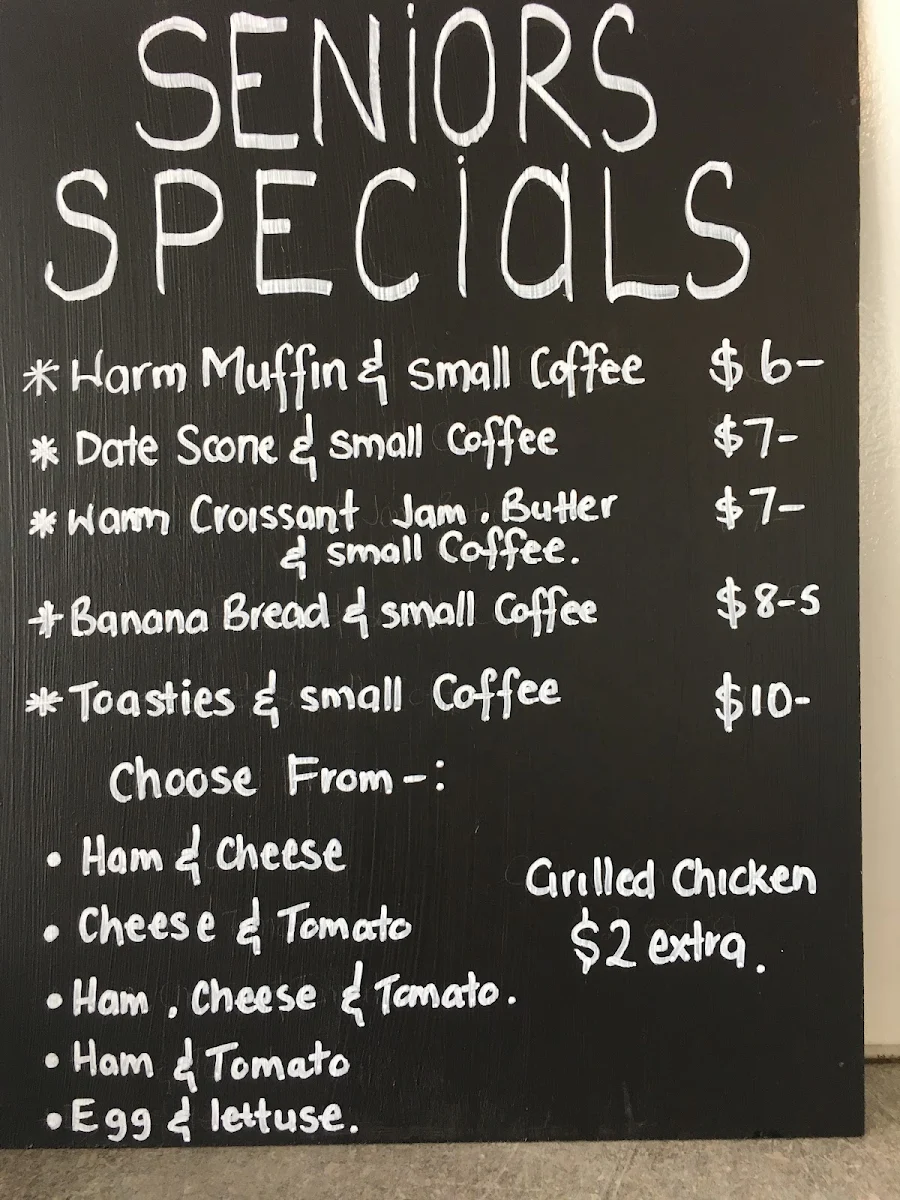 SENiORS
SPECiaLS
* Warm Muffin & small Coffee $6-
* Date Scone & small Coffee $7-
* Warm Croissant Jam, Butter $7-
& small Coffee.
* Banana Bread & small Coffee $8-5
* Toasties & small Coffee $10-
Choose From-:
• Ham & Cheese
• Cheese & Tomato
• Ham, Cheese & Tomato.
• Ham & Tomato
• Egg & lettuse.
Grilled Chicken
$2 extra.